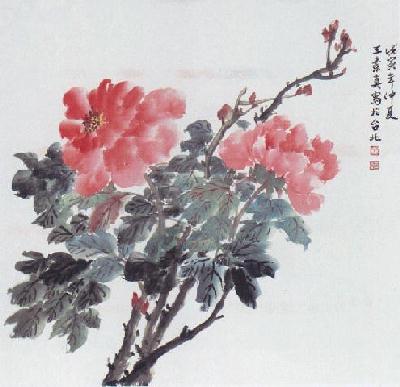 戊寅年仲夏
王素真寫於台北